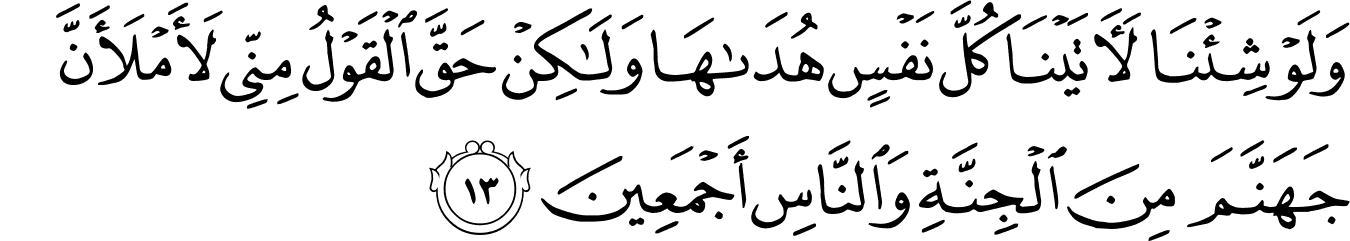 وَلَوْ شِئْنَا لَأَتَيْنَا كُلَّ نَفْسٍ هُدَىٰهَا وَلَٰكِنْ حَقَّ ٱلْقَوْلُ مِنِّى لَأَمْلَأَنَّ
جَهَنَّمَ مِنَ ٱلْجِنَّةِ وَٱلنَّاسِ أَجْمَعِينَ ١٣